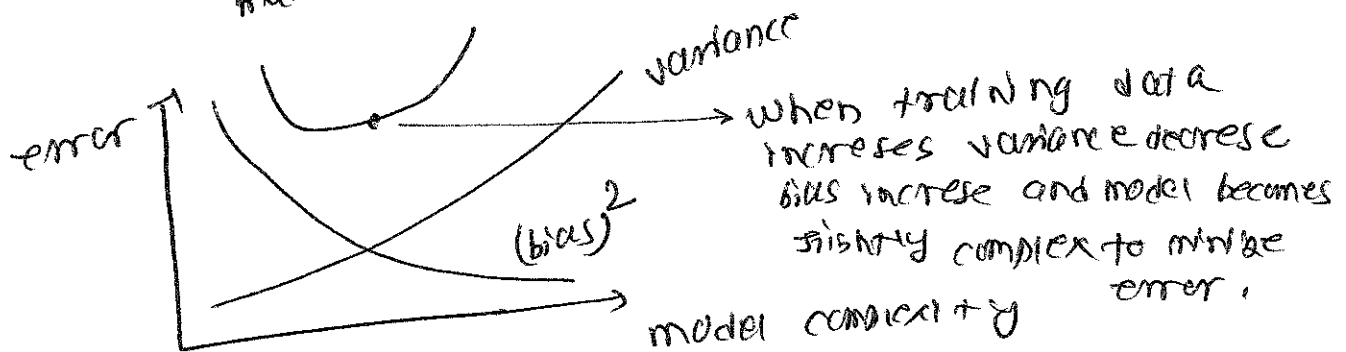 variance
error
when training data
increses variance decrese
bias increse and model becomes
slightly complex to minize
error.
(bias)²
model complexity